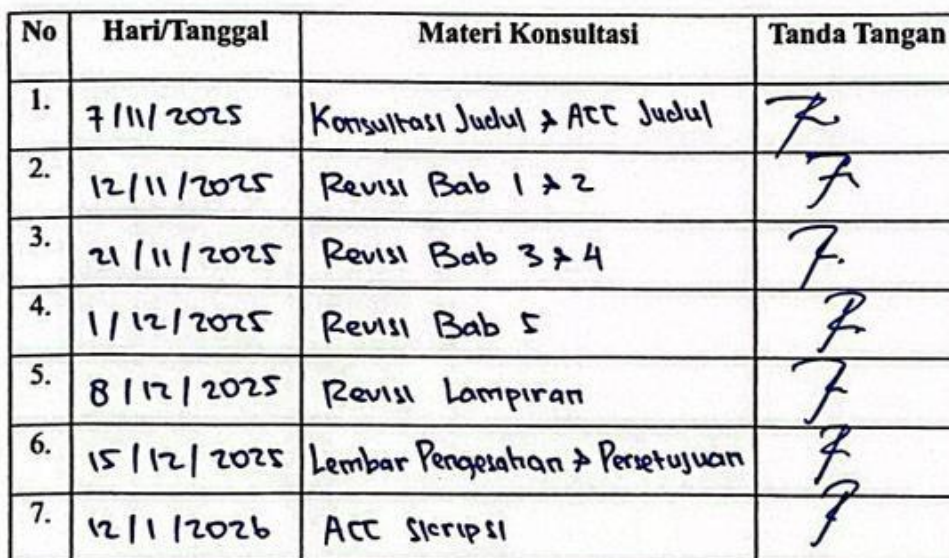 No Hari/Tanggal Materi Konsultasi Tanda Tangan
1. 7/11/2025 Konsultasi Judul & ACC Judul
2. 12/11/2025 Revisi Bab 1 & 2
3. 21/11/2025 Revisi Bab 3 & 4
4. 1/12/2025 Revisi Bab 5
5. 8/12/2025 Revisi Lampiran
6. 15/12/2025 Lembar Pengesahan & Persetujuan
7. 12/1/2026 ACC Skripsi